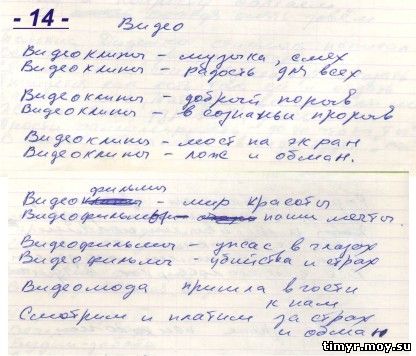 - 14 -
Видео
Видеоклипы - музыка, смех
Видеоклипы - радость для всех
Видеоклипы - добрый порыв
Видеоклипы - в сознаньи прорыв
Видеоклипы - мост на экран
Видеоклипы - лож и обман.
Видеофильмы - мир красоты
Видеофильмы - наши мечты.
Видеофильмы - ужас в глазах
Видеофильмы - убийства и страх
Видеомода пришла в гости
к нам
Смотрим и платим за страх
и обман
timyr.moy.su